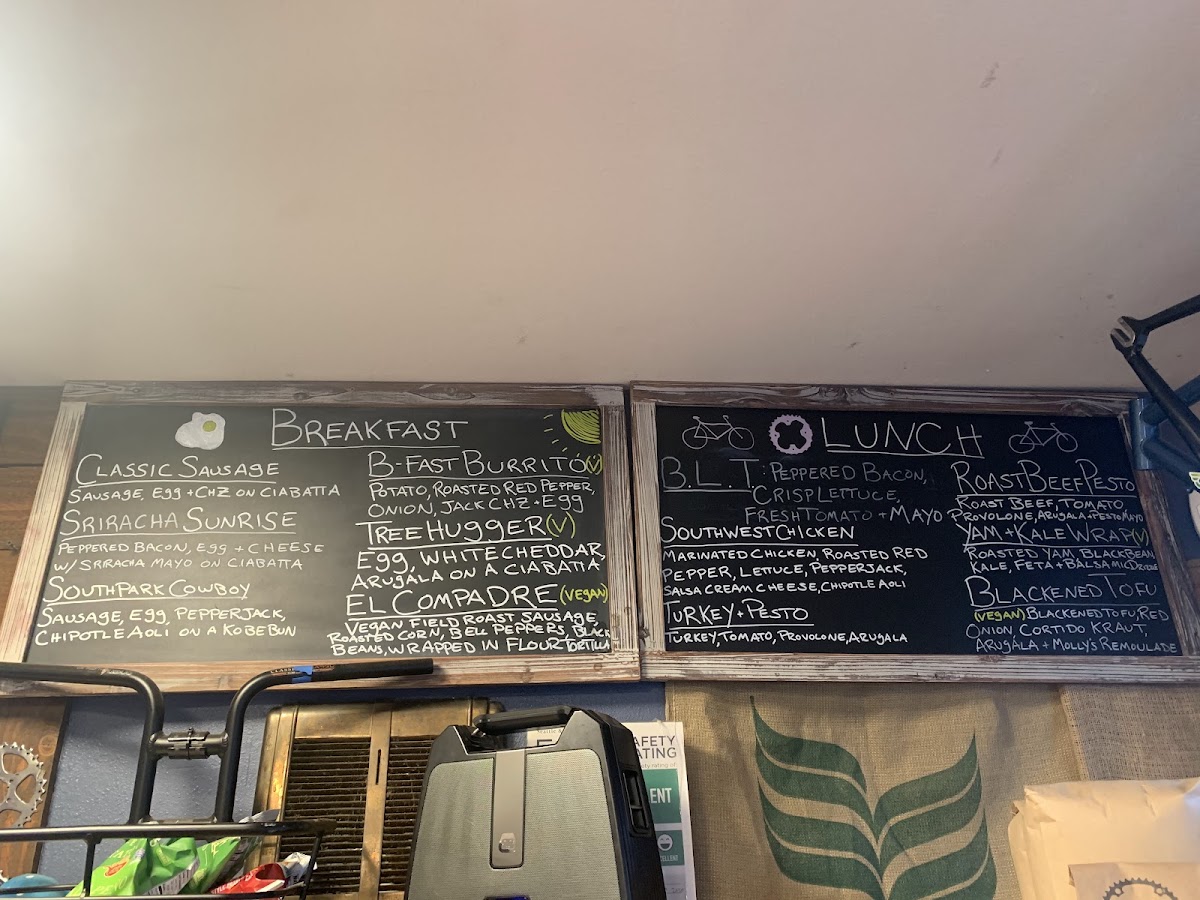 BREAKFAST
CLASSIC SAUSAGE
SAUSAGE, EGG + CHZ ON CIABATTA
SRIRACHA SUNRISE
PEPPERED BACON, EGG + CHEESE
W/ SRIRACHA MAYO ON CIABATTA
SOUTHPARK COWBOY
SAUSAGE, EGG, PEPPERJACK,
CHIPOTLE AOLI ON A KOBE BUN
B-FAST BURRITO (V)
POTATO, ROASTED RED PEPPER,
ONION, JACK CHZ + EGG
TREE HUGGER (V)
EGG, WHITE CHEDDAR,
ARUGALA ON A CIABATTA
EL COMPADRE (VEGAN)
VEGAN FIELD ROAST SAUSAGE,
ROASTED CORN, BELL PEPPERS, BLACK
BEANS, WRAPPED IN FLOUR TORTILLA
LUNCH
B.L.T: PEPPERED BACON,
CRISP LETTUCE,
FRESH TOMATO + MAYO
SOUTHWEST CHICKEN
MARINATED CHICKEN, ROASTED RED
PEPPER, LETTUCE, PEPPERJACK,
SALSA CREAM CHEESE, CHIPOTLE AOLI
TURKEY + PESTO
TURKEY, TOMATO, PROVOLONE, ARUGALA
ROAST BEEF PESTO
ROAST BEEF, TOMATO,
PROVOLONE, ARUGALA + PESTO MAYO
YAM + KALE WRAP (V)
ROASTED YAM, BLACK BEAN
KALE, FETA + BALSAMIC DRIZZLE
BLACKENED TOFU
(VEGAN) BLACKENED TOFU, RED
ONION, CORTIDO KRAUT,
ARUGALA + MOLLY'S REMOULADE
AFETY
ATING
ety rating of:
ENT